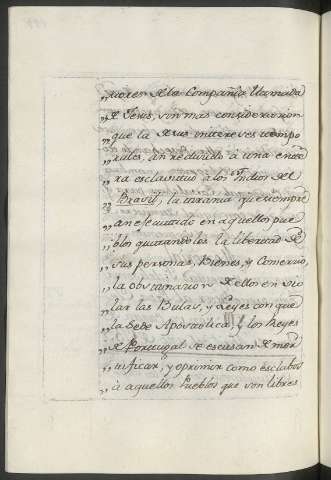 „riores de la Compañia llamada
„de Jesus, sin mas consideracion
„que la de sus intereses tempo
„rales, an reducido à una ente
„ra esclavitud à los Indios del
„Brasil, la tirania que siempre
„an ejecutado en aquellos pue
„blos quitandoles la libertad de
„sus personas, Bienes, y Comercio,
„la obstinacion de ellos en vio
„lar las Bulas, y Leyes con que
„la Sede Apostolica, y los Reyes
„de Portugal se escusan de mor
„tificar, y oprimir como esclabos
„à aquellos Pueblos que son libres